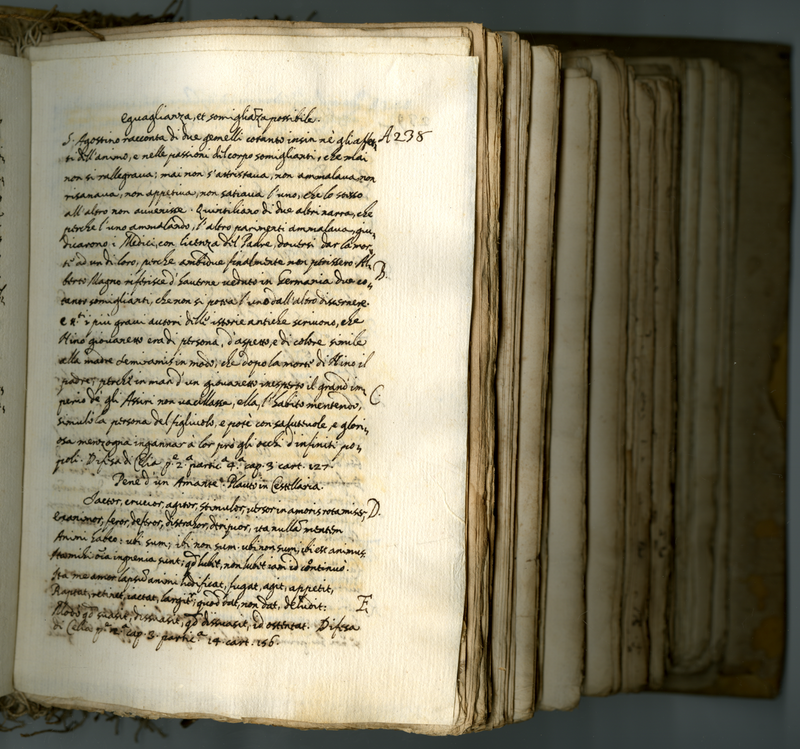 equaglianza, et somigliāza possibile.
S. Agostino racconta di due gemelli cotanto insin nè gli affet, A 238
ti dell'animo, e nelle passioni del corpo somiglianti, che mai
non si rallegrava; mai non s'attristava, non ammalava, non
risanava, non appetiva, non satiava l'uno, che lo stesso
all'altro non avvenisse. Quintiliano di due altri narra, che
perche l'uno ammalando, l'altro parimenti ammalava, giu,
dicarono i Medici, con licenza del Padre, doversi dar la mor,
te ad un di loro, perche ambidue finalmente non perissero. Al, B.
berto Magno riferisce d'haverne veduto in Germania due co,
tanto somiglianti, che non si poteva l'uno dall'altro discernere.
e i più gravi autori dell'istorie antiche scrivono, che
Nino giovanetto era di persona, d'aspetto, e di colore simile
alla madre Semiramis in modo, che dopo la morte di Nino il
padre, perchè in man d'un giovanetto inesperto il grand'im, C.
perio de gli Assiri non vacillasse, ella, l'habito mentendo,
simulò la persona del figliuolo, e potè con salutevole, e glori,
osa menzogna ingannar a lor prò gli occhi d'infiniti po,
poli. Difesa di Celia pe. 2a partic.a 4a. cap. 3. cart. 127.
Pene d'un Amante. Plauto in Cestellaria.
Jactor, crucior, agitor, stimulor, versor in amoris rota miser, D.
exanimor, feror, differor, distrahor, diripior, ita nullā mentem
Animi habeo: ubi sum, ibi non sum: ubi non sum, ibi est animus
Ita mihi oīa ingenia sunt; qd lubet, non lubet iam id cōtinuo.
Ita me amor lapsū animi ludificat, fugat, agit, appetit,
Raptat, retinet, iactat, largitr; quod dat, non dat, deludit: E
Modo qd suasit, dissuasit, qd dissuasit, id ostentat. Difesa
di Celia cap. 3. partic.a 14 cart. 156.